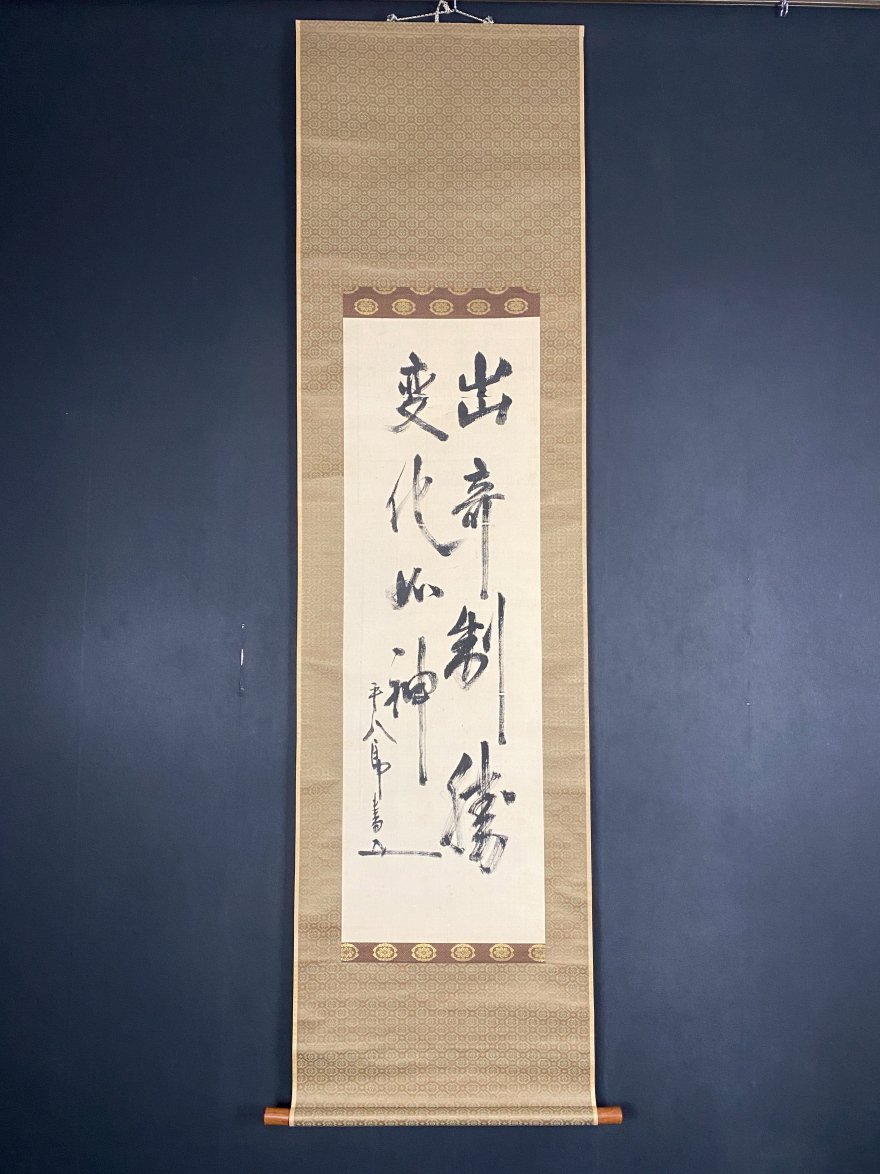 出奇制勝
変化如神
平八郎書